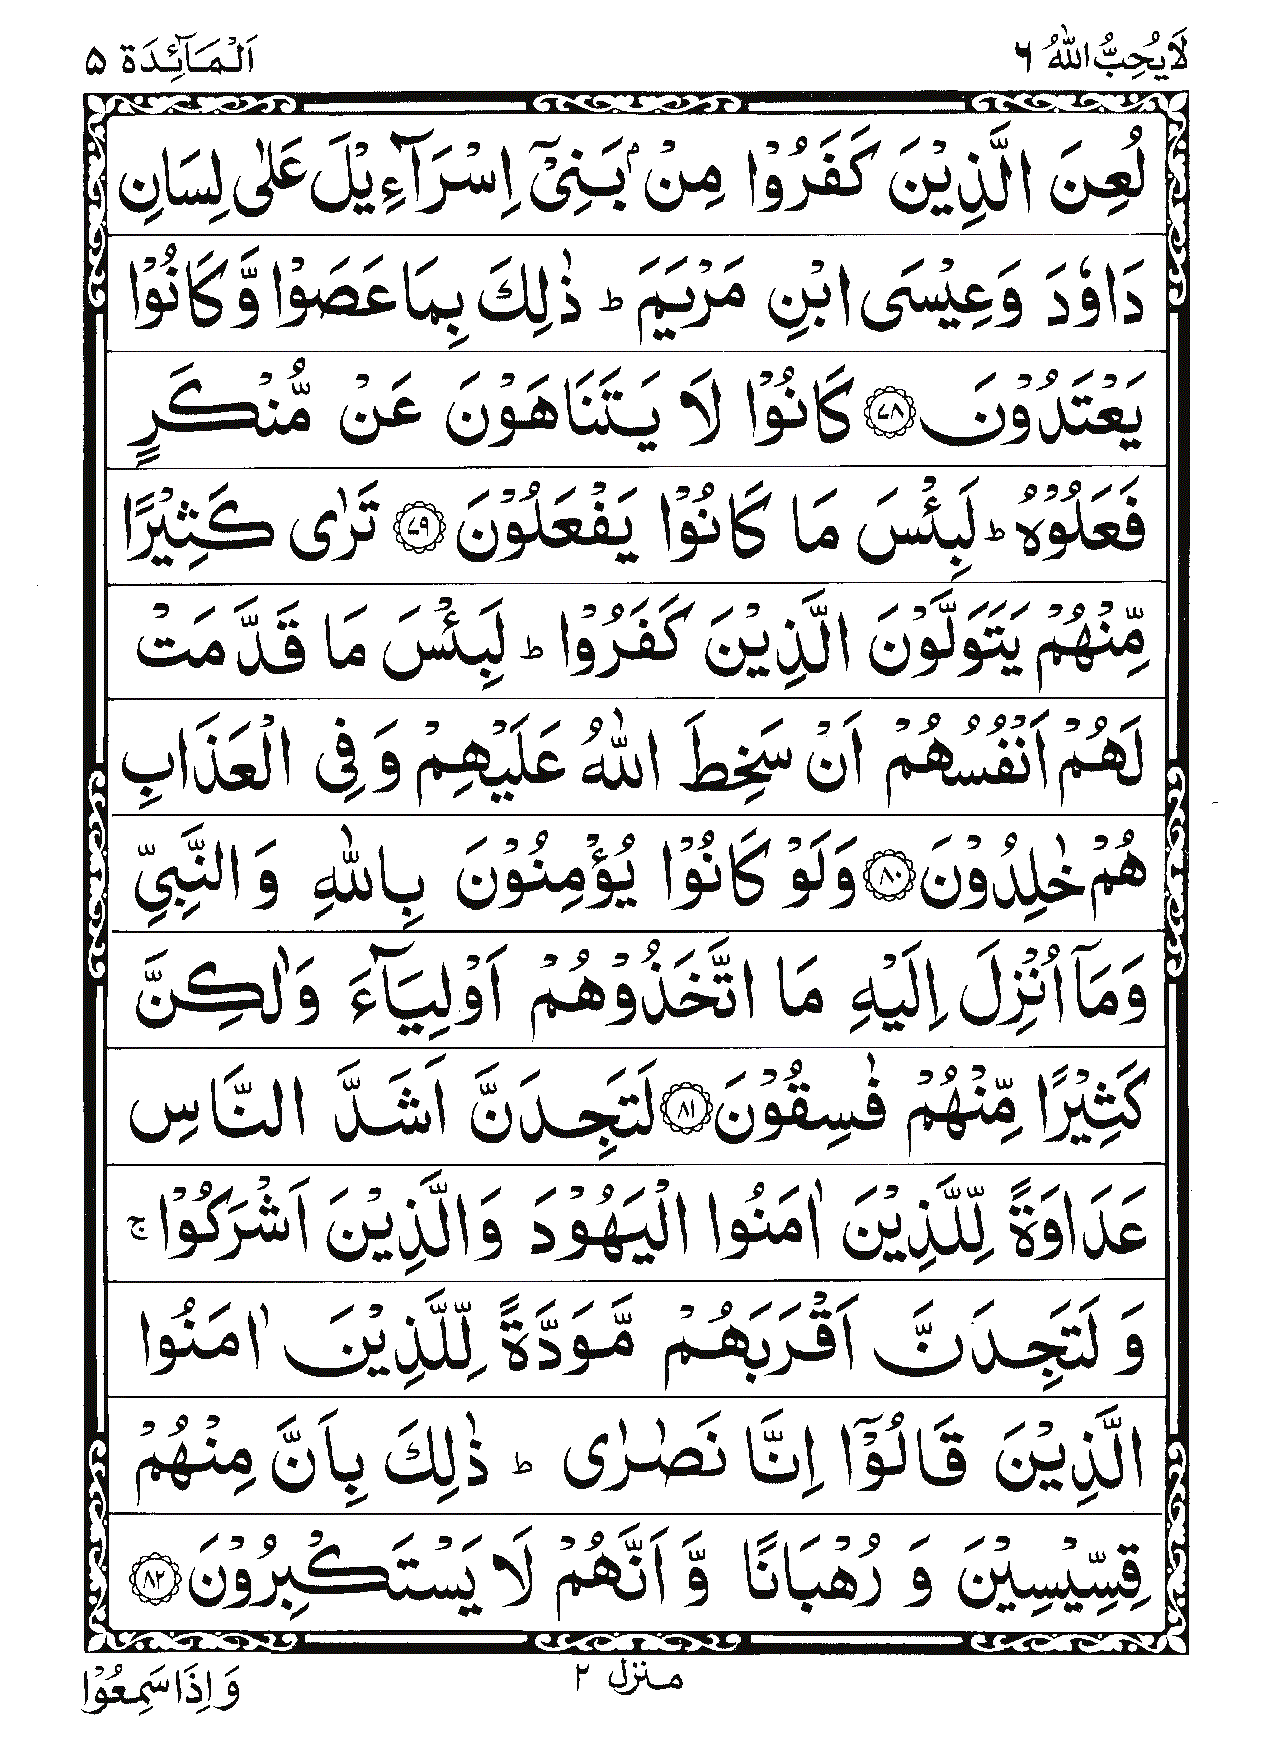 لَا يُحِبُّ اللّٰهُ ٦
اَلْمَآئِدَة ۵
لُعِنَ الَّذِيْنَ كَفَرُوْا مِنْۢ بَنِيْۤ اِسْرَآءِيْلَ عَلٰى لِسَانِ
دَاوٗدَ وَعِيْسَى ابْنِ مَرْيَمَ ؕ ذٰلِكَ بِمَا عَصَوْا وَّكَانُوْا
يَعْتَدُوْنَ ﴿۷۸﴾ كَانُوْا لَا يَتَنَاهَوْنَ عَنْ مُّنْكَرٍ
فَعَلُوْهُ ؕ لَبِئْسَ مَا كَانُوْا يَفْعَلُوْنَ ﴿۷۹﴾ تَرٰى كَثِيْرًا
مِّنْهُمْ يَتَوَلَّوْنَ الَّذِيْنَ كَفَرُوْا ؕ لَبِئْسَ مَا قَدَّمَتْ
لَهُمْ اَنْفُسُهُمْ اَنْ سَخِطَ اللّٰهُ عَلَيْهِمْ وَ فِى الْعَذَابِ
هُمْ خٰلِدُوْنَ ﴿۸۰﴾ وَلَوْ كَانُوْا يُؤْمِنُوْنَ بِاللّٰهِ وَ النَّبِيِّ
وَمَاۤ اُنْزِلَ اِلَيْهِ مَا اتَّخَذُوْهُمْ اَوْلِيَآءَ وَلٰكِنَّ
كَثِيْرًا مِّنْهُمْ فٰسِقُوْنَ ﴿۸۱﴾ لَتَجِدَنَّ اَشَدَّ النَّاسِ
عَدَاوَةً لِّلَّذِيْنَ اٰمَنُوا الْيَهُوْدَ وَالَّذِيْنَ اَشْرَكُوْا ۚ
وَ لَتَجِدَنَّ اَقْرَبَهُمْ مَّوَدَّةً لِّلَّذِيْنَ اٰمَنُوا
الَّذِيْنَ قَالُوْۤا اِنَّا نَصٰرٰى ؕ ذٰلِكَ بِاَنَّ مِنْهُمْ
قِسِّيْسِيْنَ وَ رُهْبَانًا وَّ اَنَّهُمْ لَا يَسْتَكْبِرُوْنَ ﴿۸۲﴾
منزل ٢
وَ اِذَا سَمِعُوْا